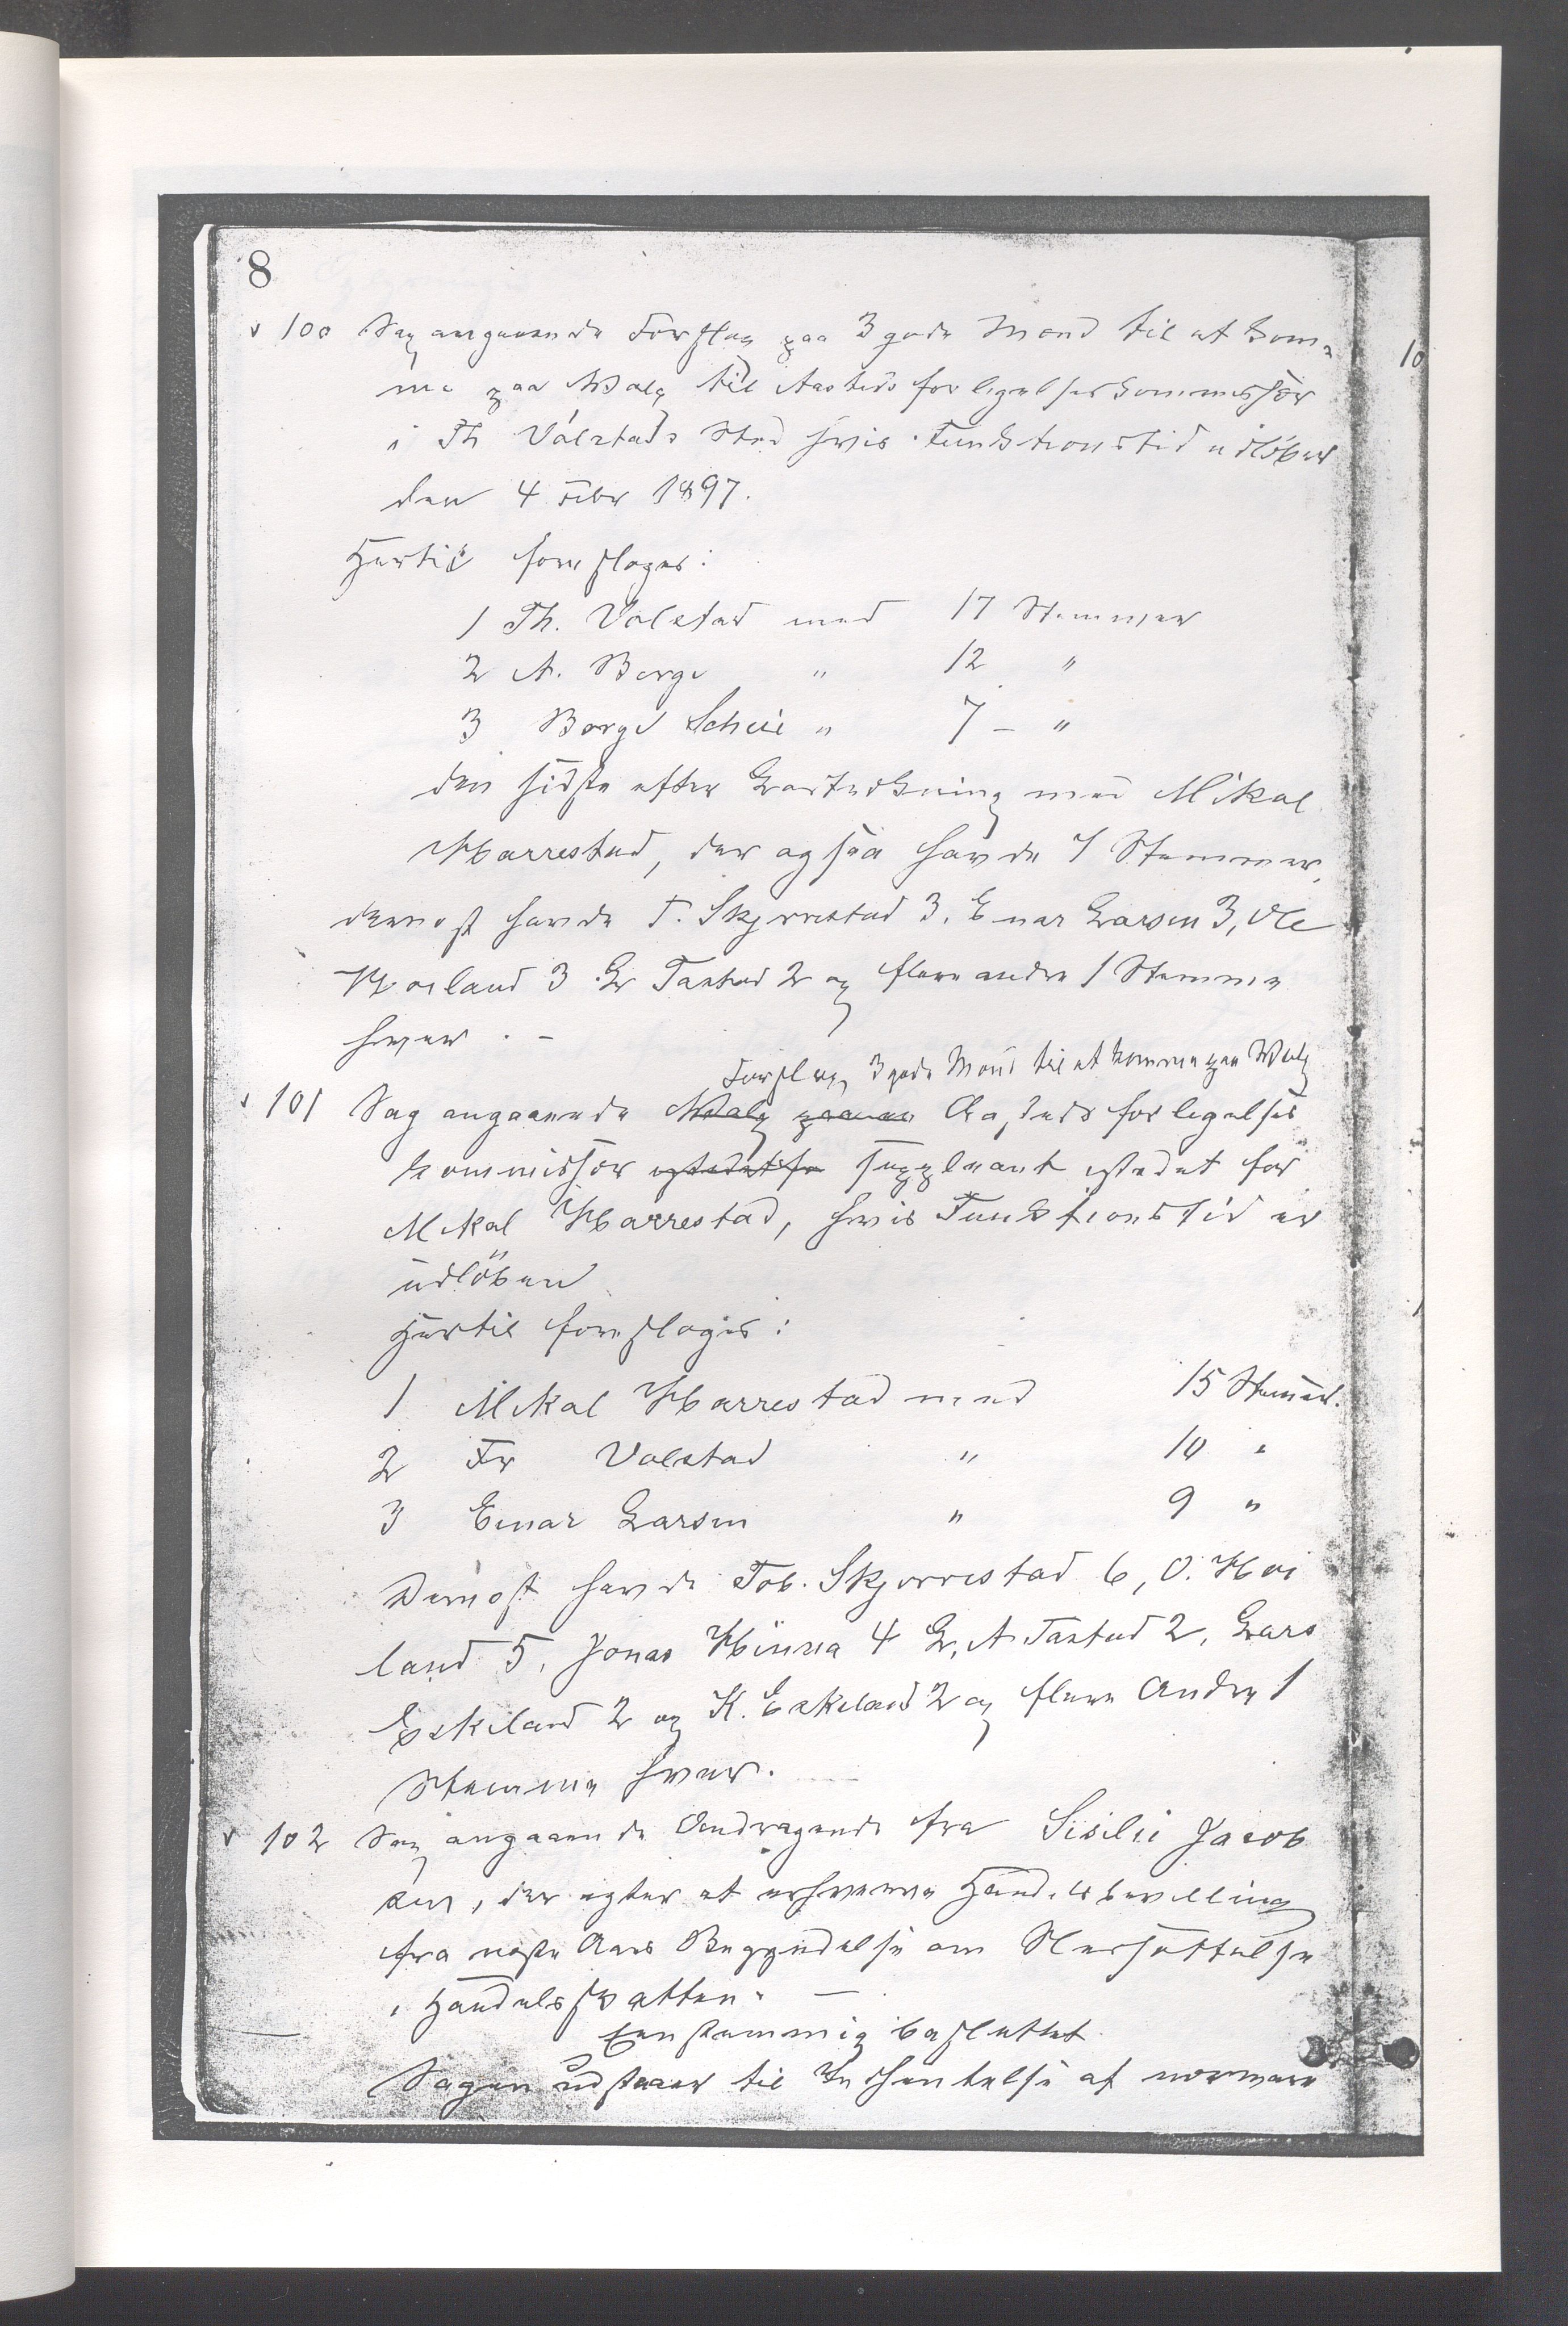 8
v 100 Sag angaaende Forslag paa 3 gode Mænd til at kom-
me paa Valg til Aastedsforligelseskommissær
i Th Volstads Sted hvis Funktionstid udløber
den 4 Febr 1897.
Hertil foresloges:
1 Th. Volstad med 17 Stemmer
2 A. Berge " 12 "
3 Borge Scheie " 7 - "
den sidste efter Lodtrækning med Mikal
Harrestad, der ogsaa havde 7 Stemmer,
dernæst havde T. Skjørrestad 3, Einar Larsen 3, Ole
Høiland 3 Lr Tastad 2 og flere andre 1 Stemme
hver . -
Forslag 3 gode Mænd til at komme paa Valg
v 101 Sag angaaende Valg Aastedsforligelses
kommissær suppleant istedet for
Mikal Harrestad, hvis Funktionstid er
udløben
Hertil foresloges:
1 Mikal Harrestad med 15 Stemmer.
2 Fr Volstad " 10 "
3 Einar Larsen " 9 "
Dernæst havde Tob. Skjørrestad 6, O. Høi
land 5, Jonas Hinna 4 L. A. Tastad 2, Lars
Eskeland 2 og K. Eskeland 2 og flere Andre 1
Stemme hver.
v 102 Sag angaaende Andragende fra Sisilie Jacob
sen, der agter at erhverve Handelsbevilling
fra næste Aars Begyndelse om Nedsættelse
i Handelsskatten. —
Eenstemmig besluttet
Sagen udstaaer til Indhentelse af nærmere
10